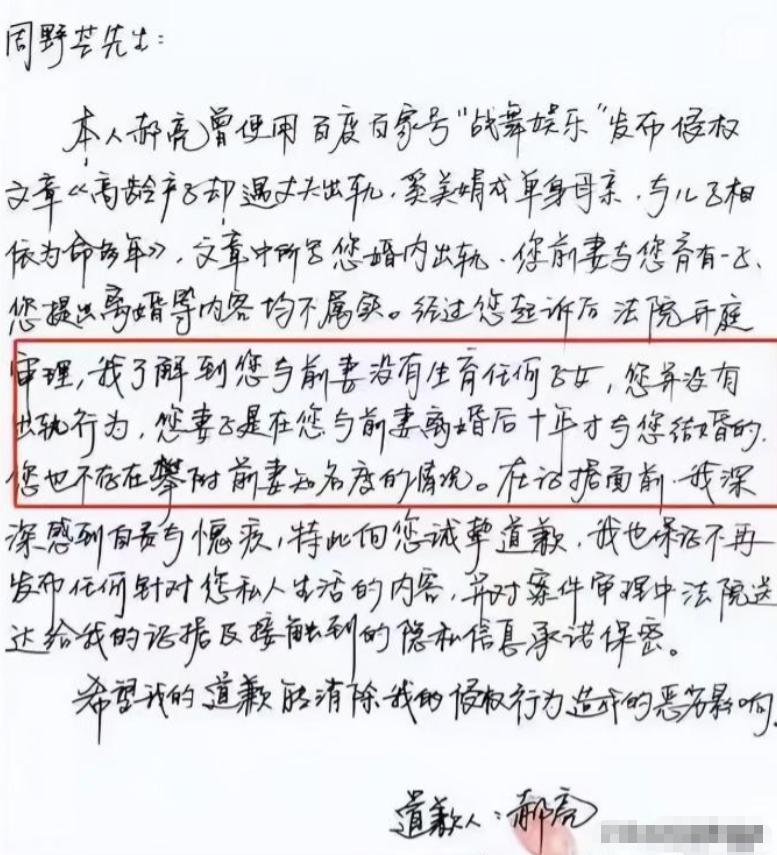 周野芒先生：
本人郝亮曾使用百度百家号“战舞娱乐”发布侵权
文章《高龄产子却遇丈夫出轨，奚美娟成单身母亲，与儿子相
依为命多年》，文章中所写您婚内出轨、您前妻与您育有一子、
您提出离婚等内容均不属实。经过您起诉后法院开庭
审理，我了解到您与前妻没有生育任何子女，您并没有
出轨行为，您妻子是在您与前妻离婚后十年才与您结婚的，
您也不存在攀附前妻知名度的情况。在证据面前，我深
深感到自责与愧疚，特此向您诚挚道歉，我也保证不再
发布任何针对您私人生活的内容，并对案件审理中法院送
达给我的证据及接触到的隐私信息承诺保密。
希望我的道歉能消除我的侵权行为造成的恶劣影响。
道歉人：郝亮